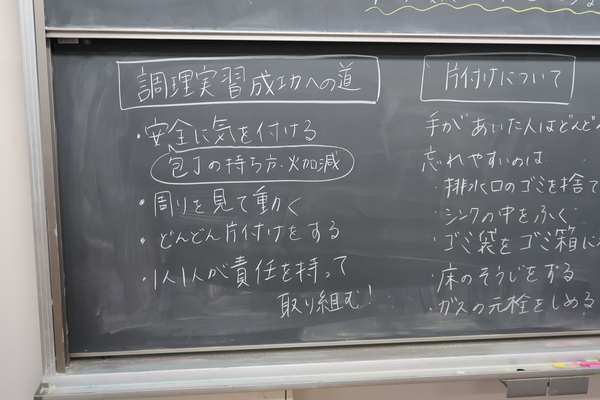 調理実習成功への道
・安全に気を付ける
包丁の持ち方・火加減
・周りを見て動く
・どんどん片付けをする
・1人1人が責任を持って
取り組む!
片付けについて
手があいた人はどんど
忘れやすいのは
・排水口のゴミを捨て
・シンクの中をふく
・ゴミ袋をゴミ箱に
・床のそうじをする
・ガスの元栓をしめる